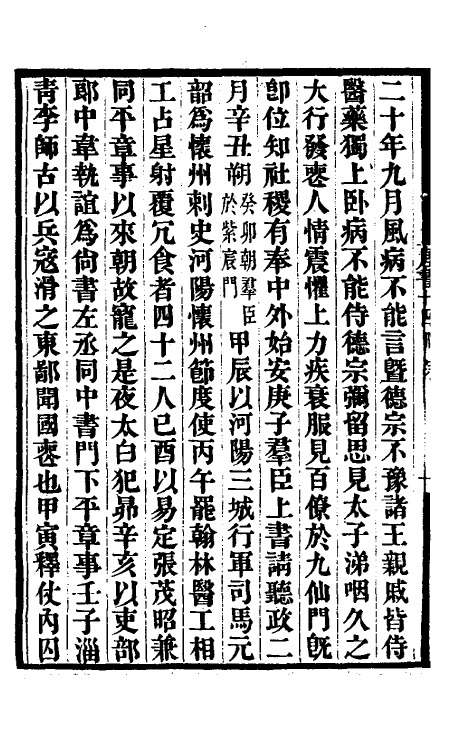 二十年九月風病不能言暨德宗不豫諸王親戚皆侍
醫藥獨上卧病不能侍德宗彌留思見太子涕咽久之
大行發喪人情震懼上力疾衰服見百僚於九仙門旣
卽位知社稷有奉中外始安庚子羣臣上書請聽政二
月辛丑朔癸卯朝羣臣於紫宸門甲辰以河陽三城行軍司馬元
韶爲懷州刺史河陽懷州節度使丙午罷翰林醫工相
工占星射覆冗食者四十二人己酉以易定張茂昭兼
同平章事以來朝故寵之是夜太白犯昴辛亥以吏部
郎中韋執誼爲尙書左丞同中書門下平章事壬子淄
靑李師古以兵寇滑之東鄙聞國喪也甲寅釋仗內囚